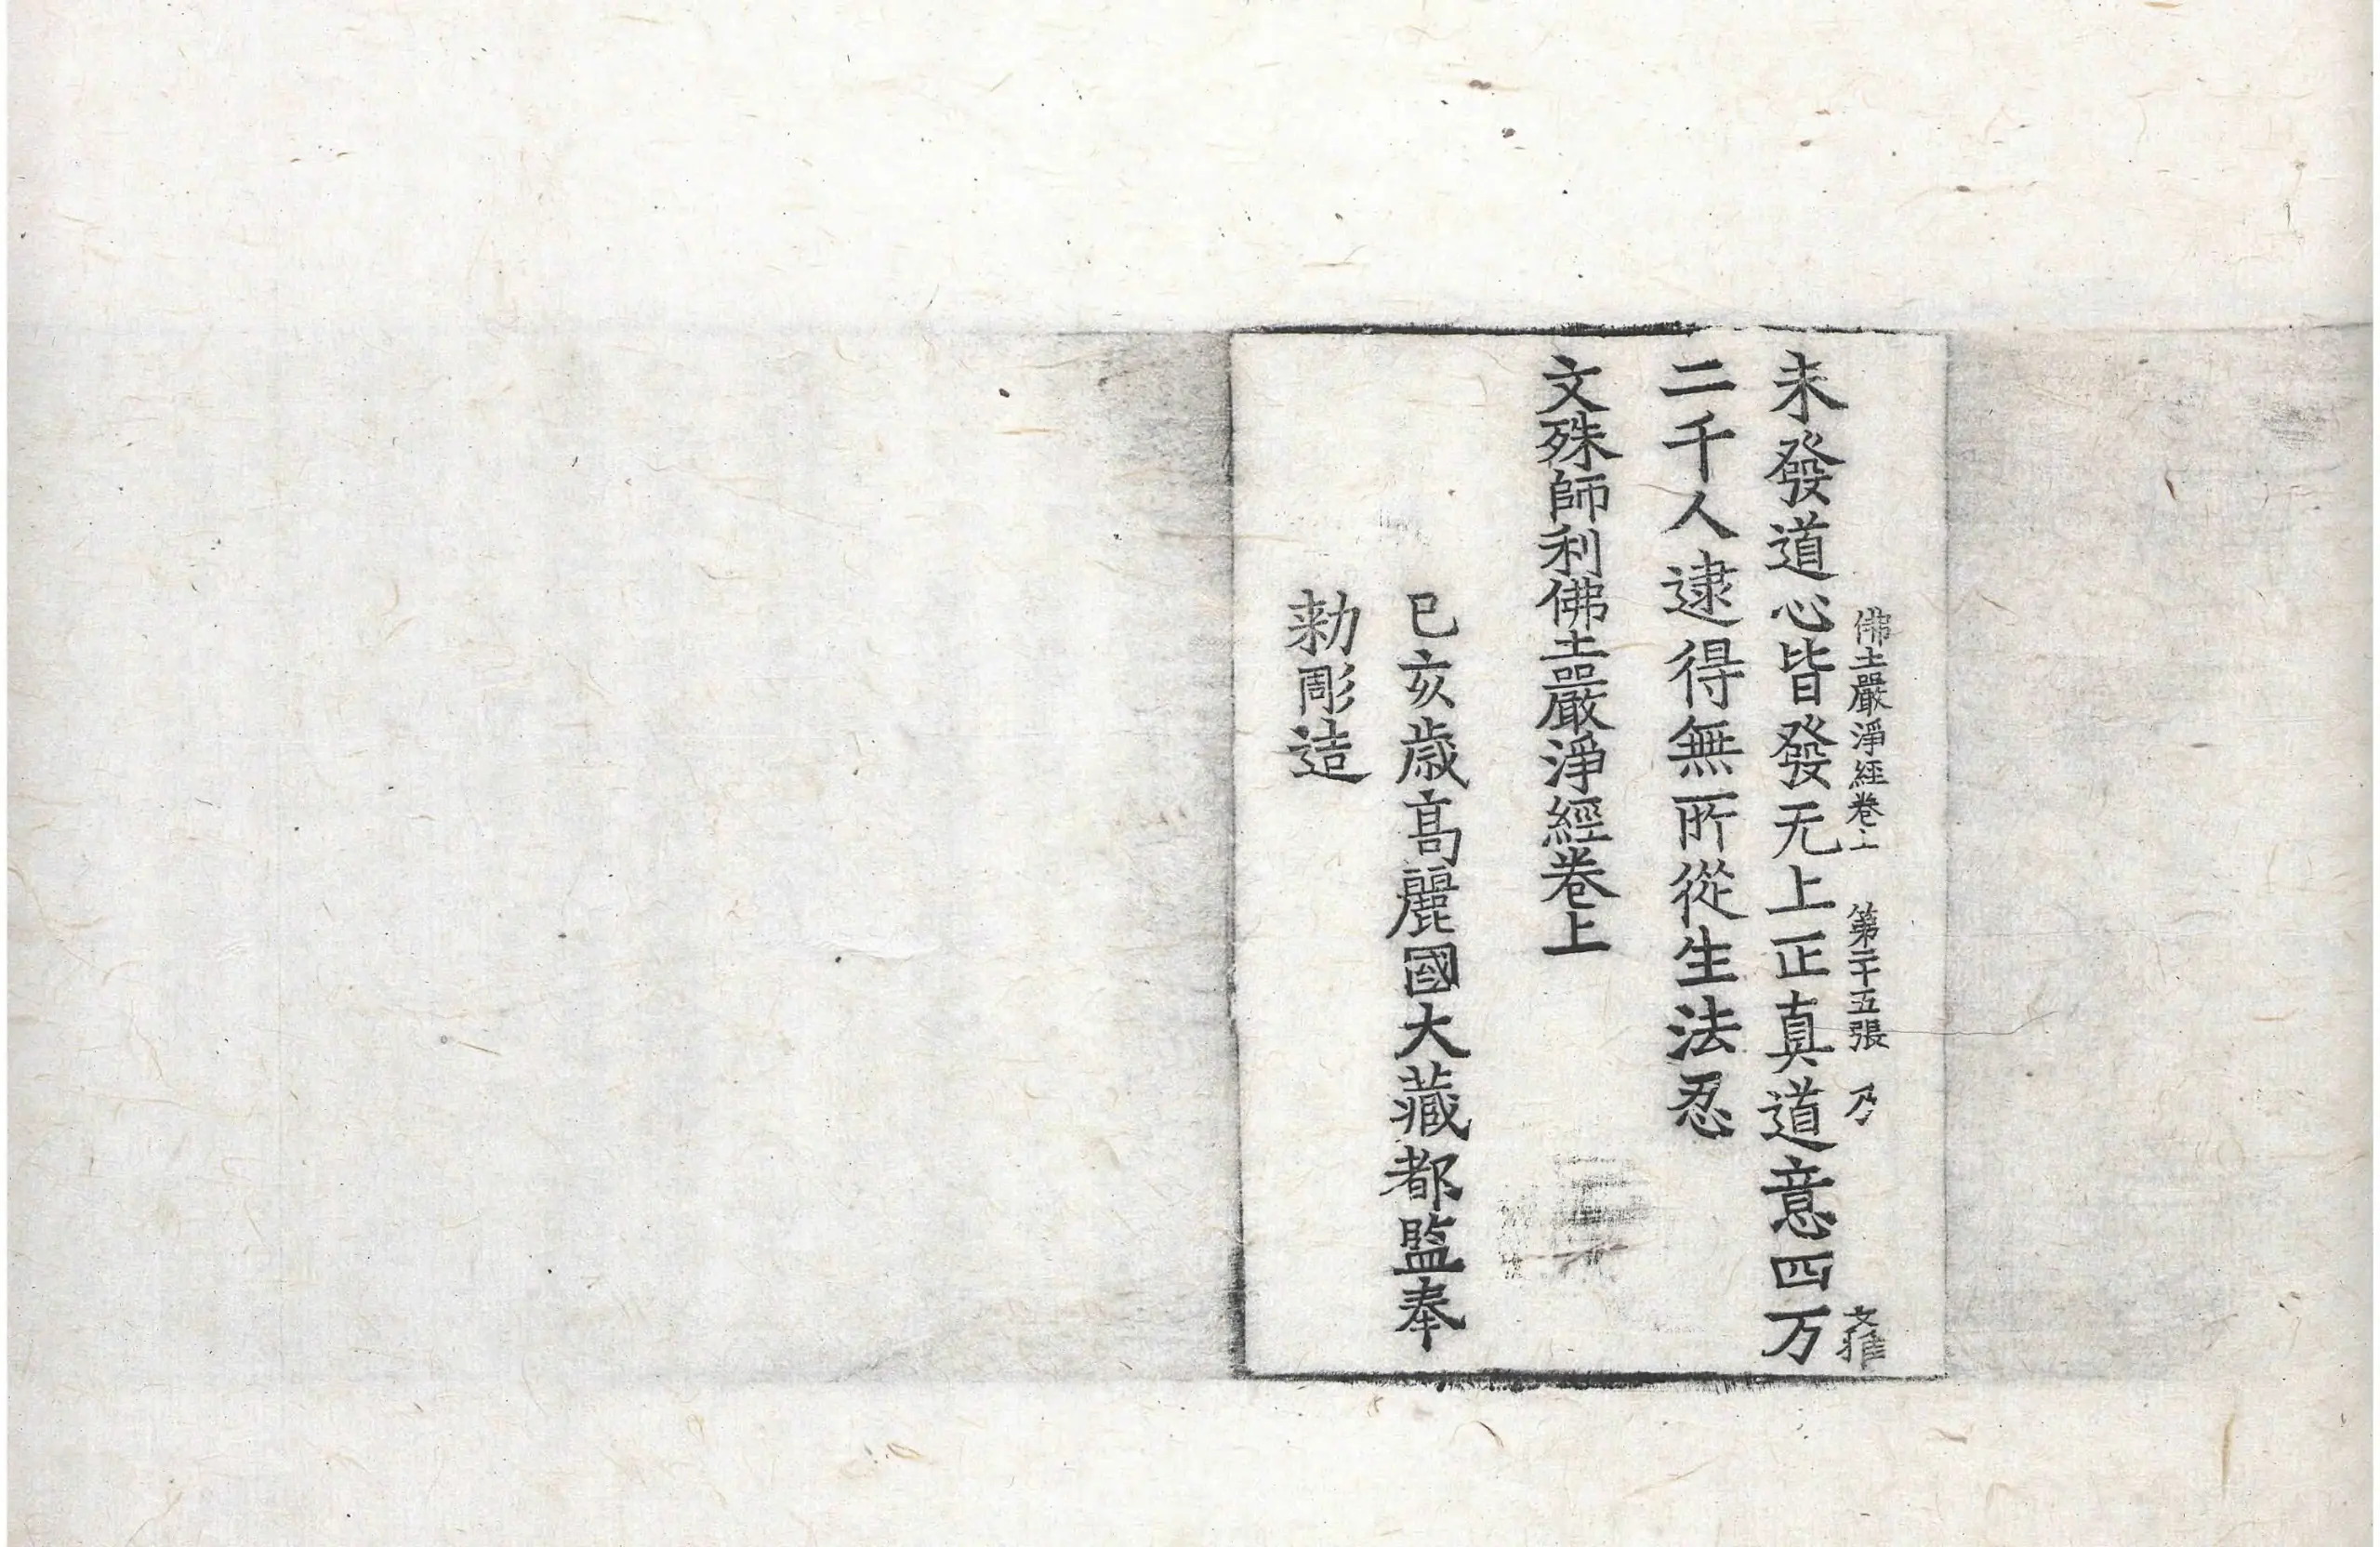 佛土嚴淨經卷上 第二十五張 乃
未發道心皆發无上正真道意四万
二千人逮得無所從生法忍
文殊師利佛土嚴淨經卷上
己亥歲高麗國大藏都監奉
勅彫造